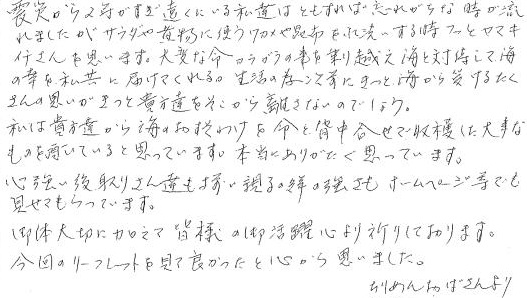 震災から2年がすぎ遠くにいる私達はともすれば忘れがちな時が流
れましたがサラダや煮物に使うワカメや昆布を水洗いする時フッとヤマキ
イチさんを思います。大変な命からがらの事を乗り越え海と対峙して海
の幸を私共に届けてくれる。生活の為に次前にきっと海から受けるたく
さんの思いがきっと貴方達をそこから離さないのでしょう。
私は貴方達から海のおすそわけを命と背中合せで収穫した大事な
ものを頂いていると思っています。本当にありがたく思っています。
心強い後取りさん達も揃い親子の絆の強さも ホームページ等でも
見せてもらっています。
御体大切に 皆様の御活躍心より祈りております。
今回のリーフレットを見て良かったと心から思いました。
ちりめんおばさんより